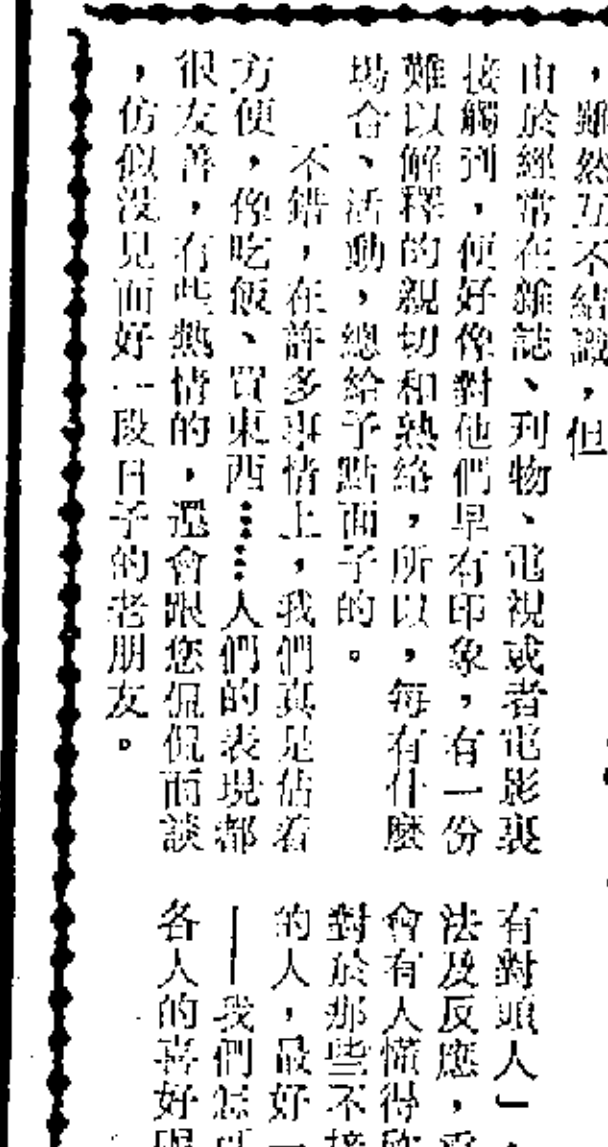 ，雖然互不結識，但
由於經常在雜誌、刋物、電視或者電影裏
接觸到，便好像對他們早有印象，有一份
難以解釋的親切和熟絡，所以，每有什麼
場合、活動，總給予點面子的。
不錯，在許多事情上，我們眞是佔着
方便，像吃飯、買東西……人們的表現都
很友善，有些熱情的，還會跟您侃侃而談
，仿似沒見面好一段日子的老朋友。
有對頭人」，
法及反應，
會有人懂得
對於那些不接
的人，最好一
——我們怎可
各人的喜好